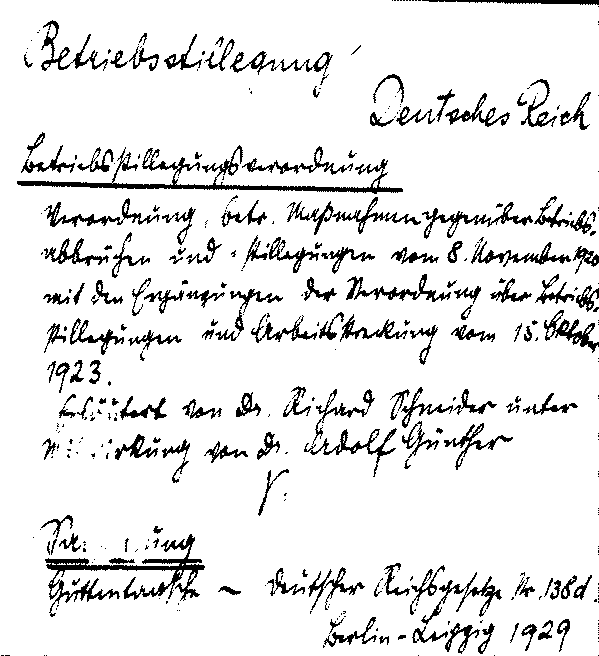 Betriebsstillegung
Deutsches Reich
Betriebsstillegungsverordnung
Verordnung, betr. Maßnahmen gegenüber Betriebs-
abbrüchen und -stillegungen vom 8. November 1920
mit den Ergänzungen der Verordnung über Betriebs-
stillegungen und Arbeitsstreckung vom 15. Oktober
1923.
Erläutert von Dr. Richard Schneider unter
Mitwirkung von Dr. Adolf Günther
V.
Sammlung
Guttentagsche - Deutscher Reichsgesetze Nr. 138d
Berlin-Leipzig 1929